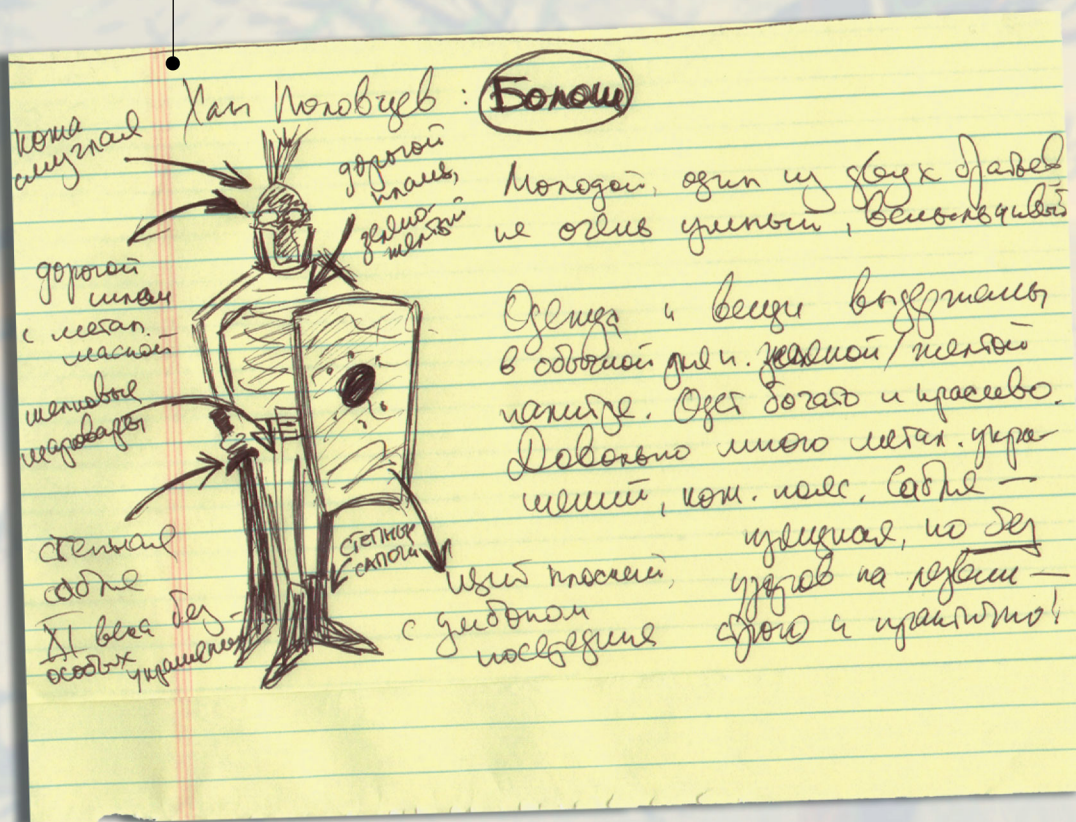 Хан Половцев : Болош
кожа
смуглая
дорогой
шлем
с метал.
маской
шелковые
шаровары
степная
сабля
XI века без
особых украшений
дорогой
плащ,
зелено-
желтый
степные
сапоги
щит плоский,
с умбоном
посередине
Молодой, один из двух братьев
не очень умный, вспыльчивый
Одежда и вещи выдержаны
в обычной для н. зеленой/желтой
палитре. Одет богато и красиво.
Довольно много метал. укра-
шений, кож. пояс. Сабля —
изящная, но без
узоров на лезвии —
строго и практично!